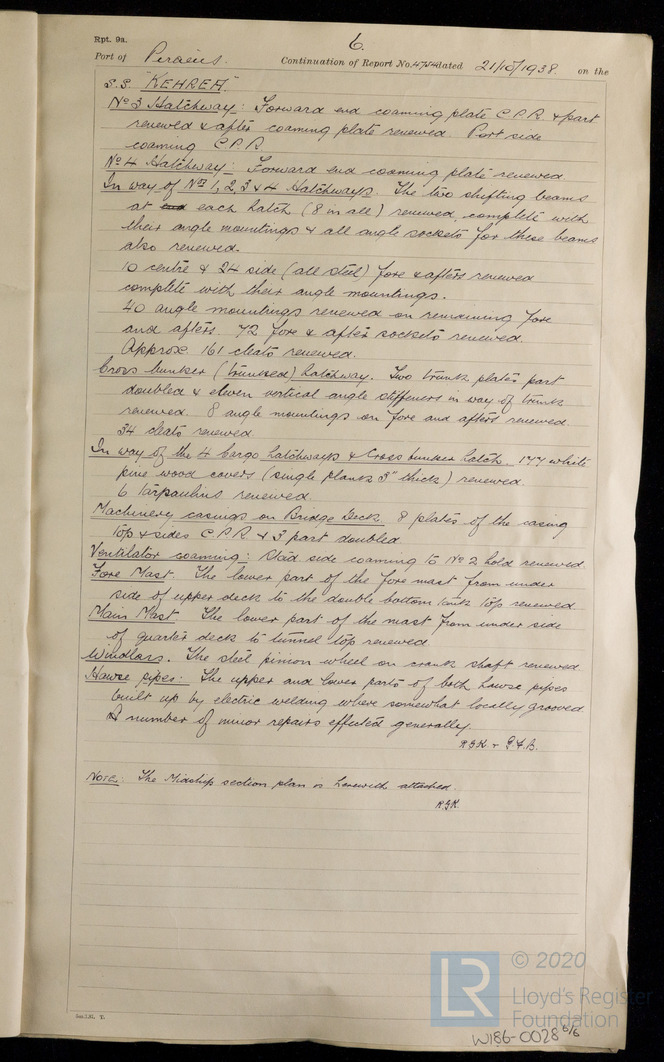 Rpt. 9a.
6.
Port of Piraeus. Continuation of Report No. 4754 dated 21/10/1938. on the
S.S. "KEHREA"
No 3 Hatchway: Forward end coaming plate C.P.R. & part
renewed & after coaming plate renewed. Port side
coaming C.P.R.
No 4 Hatchway: Forward end coaming plate renewed
In way of Nos 1, 2, 3 & 4 Hatchways. The two shifting beams
at each hatch (8 in all) renewed, complete with
their angle mountings & all angle sockets for these beams
also renewed.
10 centre & 24 side (all steel) fore & afters renewed
complete with their angle mountings.
40 angle mountings renewed on remaining fore
and afters. 72 fore & after sockets renewed.
Approx. 161 cleats renewed.
Cross bunker (trunked) hatchway. Two trunk plates part
doubled & eleven vertical angle stiffeners in way of trunk
renewed. 8 angle mountings on fore and afters renewed.
34 cleats renewed.
In way of the 4 cargo hatchways & Cross bunker hatch. 177 white
pine wood covers (single planks 3" thick) renewed.
6 tarpaulins renewed.
Machinery casings on Bridge Deck. 8 plates of the casing
top & sides C.P.R. & 3 part doubled.
Ventilator coaming: Stbd side coaming to No 2 hold renewed.
Fore Mast. The lower part of the fore mast from under
side of upper deck to the double bottom tank top renewed
Main Mast. The lower part of the mast from under side
of quarter deck to tunnel top renewed.
Windlass. The steel pinion wheel on crank shaft renewed.
Hawse pipes: The upper and lower parts of both hawse pipes
built up by electric welding where somewhat locally grooved.
A number of minor repairs effected generally.
Note: The Midship section plan is herewith attached.
© 2020
LR
Lloyd's Register
Foundation
W186-0028 6/6